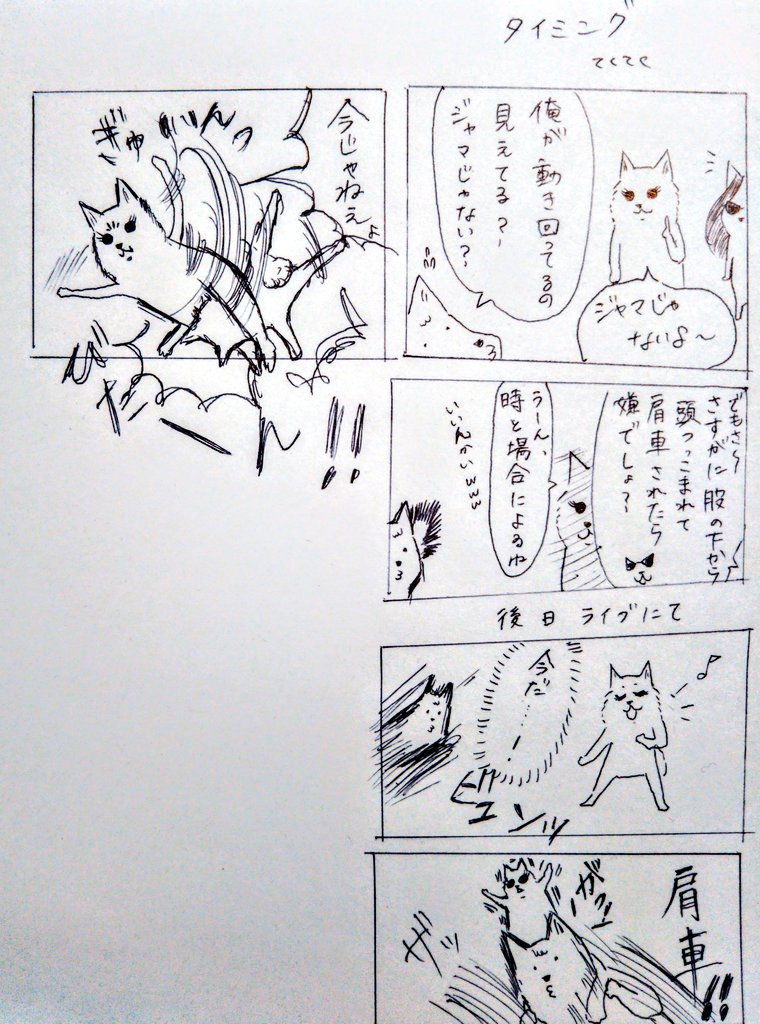 タイミング
てくてく
俺が動き回ってるの
見えてる?
ジャマじゃない?
ジャマじゃ
ないよ〜
でもさ〜
さすがに股の下から
頭つっこまれて
肩車されたら
嫌でしょ?
うーん、
時と場合によるね
いいんかいwww
後日 ライブにて
今だ…!
ギュンッ
肩車!!
がっ
ザッ
今じゃねえよ
ぎゅいんっ
びたーん!!